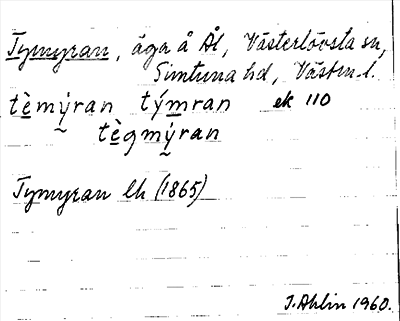 Tymyran, äga å Ål, Västerlövsta sn,
Simtuna hd, Västm. l.
tèmýran týmran ek 110
tègmýran
Tymyran Ek (1865)
I. Ahlin 1960.